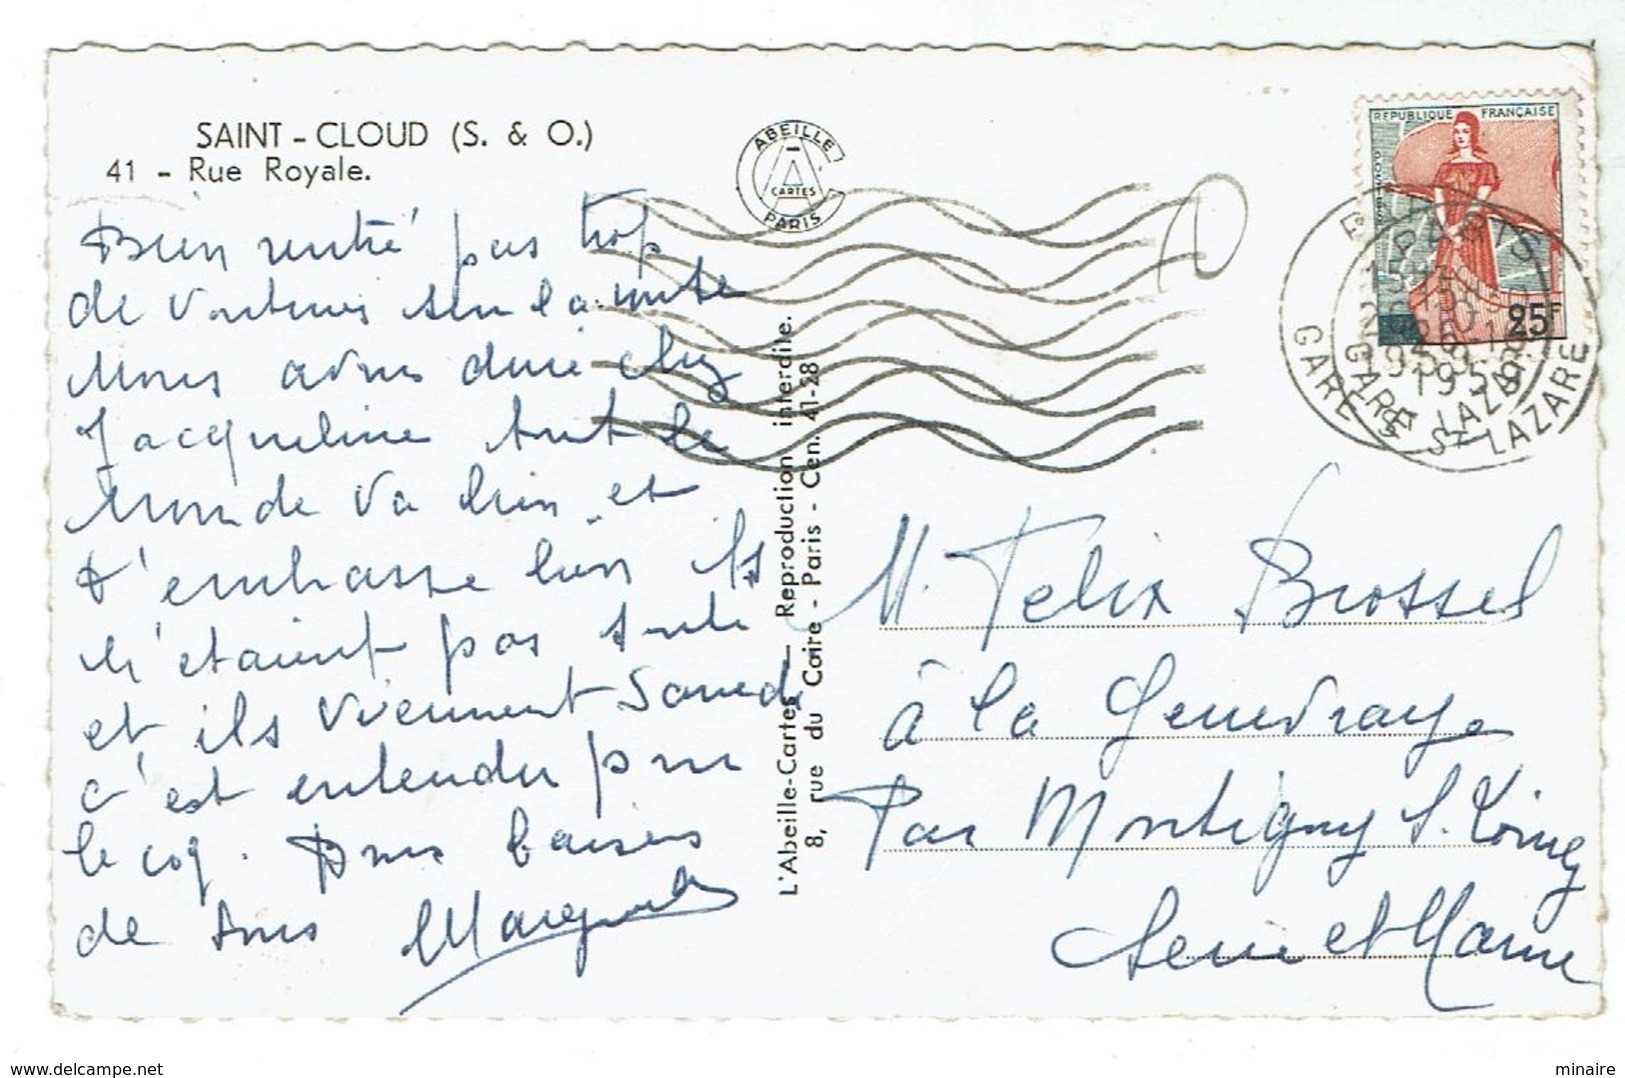 SAINT - CLOUD (S. & O.)
41 - Rue Royale.
ABEILLE
CARTES
PARIS
REPUBLIQUE FRANÇAISE
POSTES
25F
PARIS
1959
GARE ST LAZARE
GARE ST LAZARE
Bien rentré pas trop
de voitures sur la route
Nous avons diné chez
Jacqueline tout le
monde va bien et
t'embrasse bien ils
n'étaient pas
et ils viennent Samedi
c'est entendu pour
le coq. Bons baisers
de tous
L'Abeille-Cartes — Reproduction interdite.
8, rue du Caire - Paris - Cen. 41-28
M. Felix Brossel
à la Genevraye
Par Montigny S. Loing
Seine et Marne
minaire
www.delcampe.net